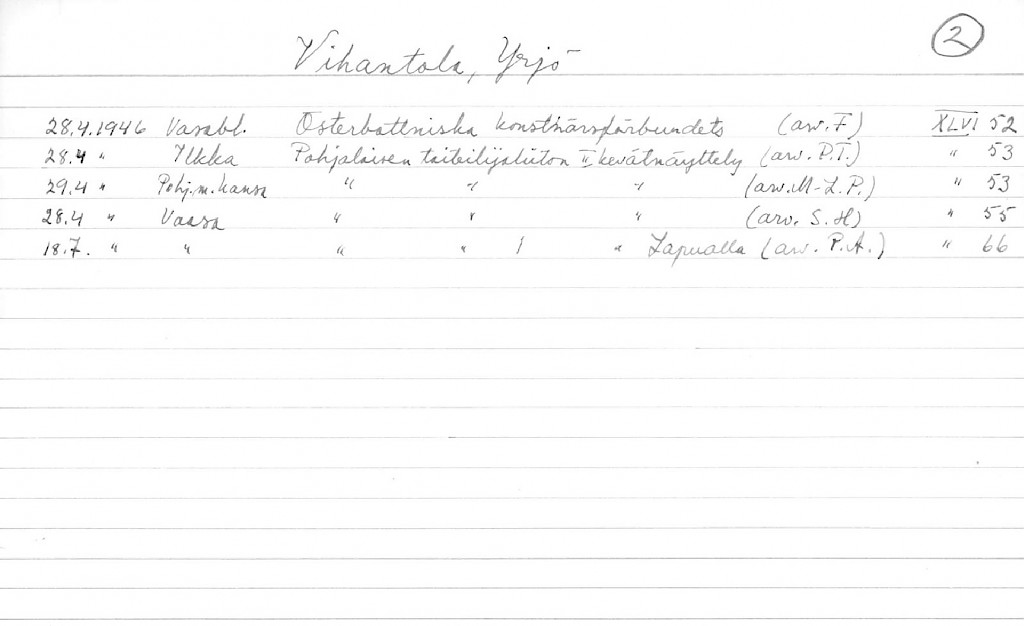 2
Vihantola, Yrjö
28.4.1946 Vasabl. Österbottniska konstnärsförbundets (arv. F) XLVI 52
28.4 " Ilkka Pohjalaisen taiteilijaliiton II kevätnäyttely (arv. P.T.) " 53
29.4 " Pohj.m. kansa " " " (arv. M-L.P.) " 53
28.4 " Vaasa " " " (arv. S.H) " 55
18.7. " " " " / " Lapualla (arv. P.A.) " 66